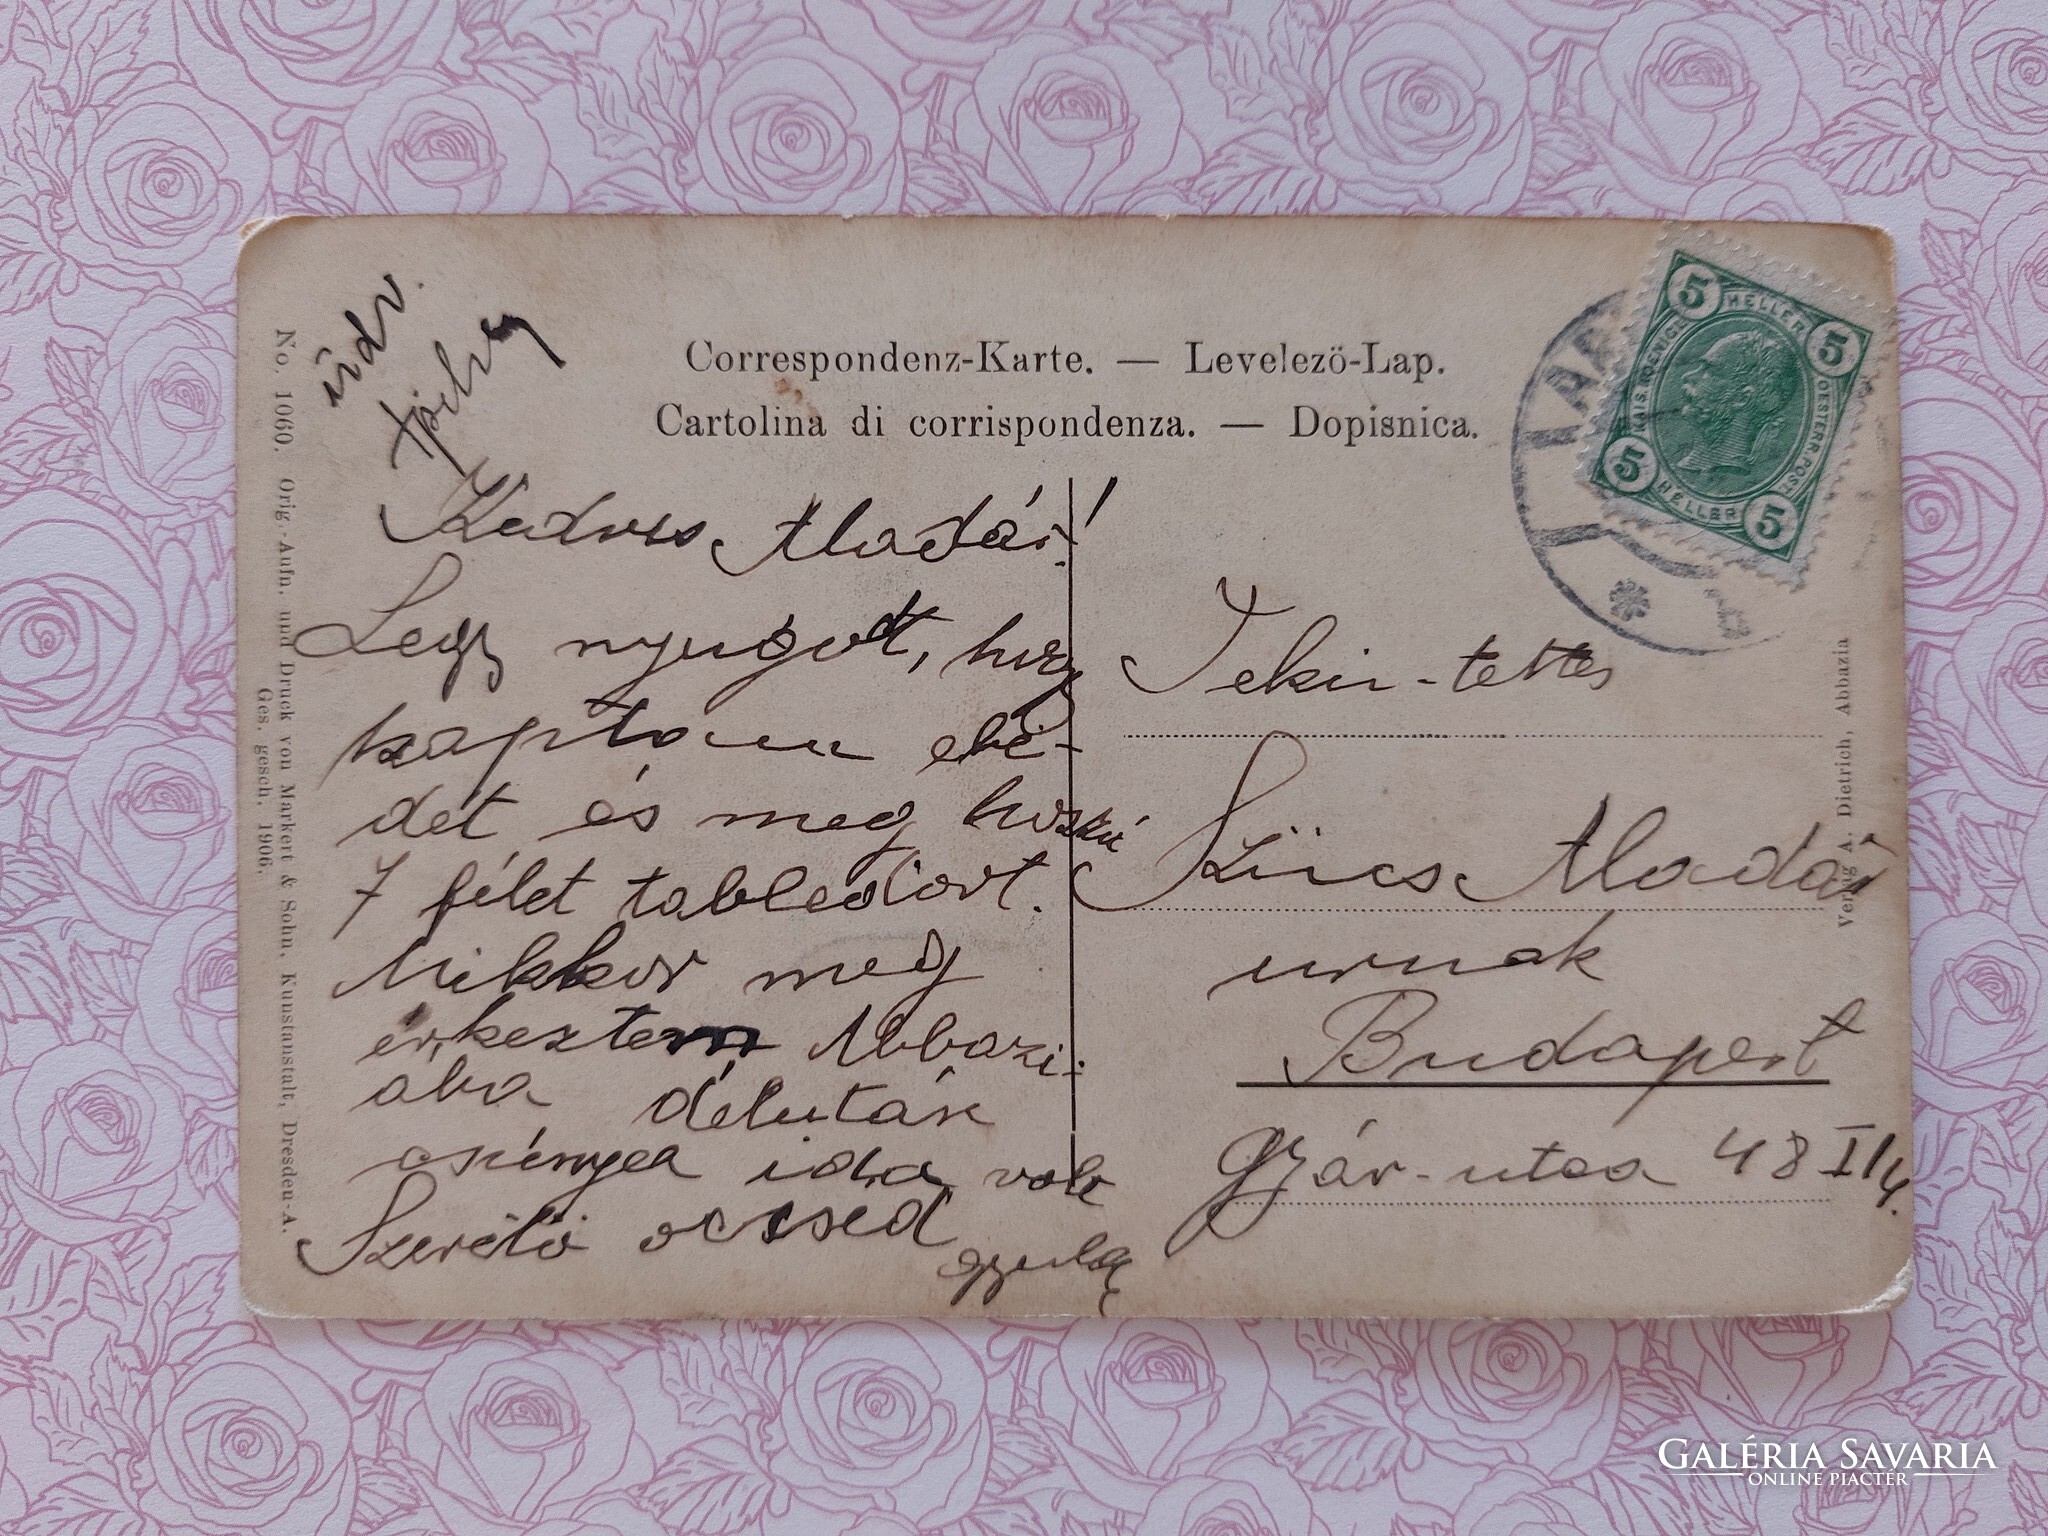 üdv.
Correspondenz-Karte. — Levelezö-Lap.
Cartolina di corrispondenza. — Dopisnica.
Kedves Aladár!
Légy nyugodt, hogy
kaptam ebé-
det és meg hozzá
7 félét tabledóort.
Mikkor meg
érkeztem Abbazi-
ába délután
csúnyea ida volt
Szerető öccsed
Gyula
Tekin-tettes
Szücs Aladár
urnak
Budapest
Gyár-utca 48 II/4.
5 HELLER 5
KAIS. KOENIGL. OESTERR. POST
5 HELLER 5
No. 1060. Orig.-Aufn. und Druck von Markert & Sohn, Kunstanstalt, Dresden-A.
Ges. gesch. 1906.
Verlag A. Dietrich, Abbazia
GALÉRIA SAVARIA
ONLINE PIACTÉR